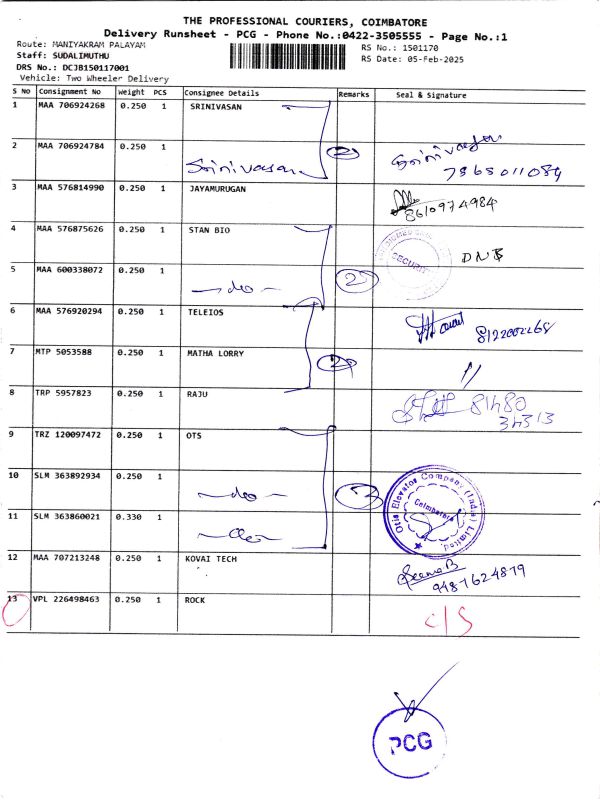 THE PROFESSIONAL COURIERS, COIMBATORE
Delivery Runsheet - PCG - Phone No.:0422-3505555 - Page No.:1
Route: MANIYAKRAM PALAYAM
RS No.: 1501170
Staff: SUDALIMUTHU
RS Date: 05-Feb-2025
DRS No.: DCJB150117001
Vehicle: Two Wheeler Delivery
S No Consignment No Weight PCS Consignee Details Remarks Seal & Signature
1 MAA 706924268 0.250 1 SRINIVASAN
2 MAA 706924784 0.250 1 Srinivasan 2 Srinivasan
7365011084
3 MAA 576814990 0.250 1 JAYAMURUGAN 8610974984
4 MAA 576875626 0.250 1 STAN BIO SECURITY DNB
5 MAA 600338072 0.250 1 -do- 2
6 MAA 576920294 0.250 1 TELEIOS 8122002268
7 MTP 5053588 0.250 1 MATHA LORRY 2 11
8 TRP 5957823 0.250 1 RAJU 81480
34313
9 TRZ 120097472 0.250 1 OTS
10 SLM 363892934 0.250 1 -do- 3 Otis Elevator Company (India) Limited
Coimbatore
11 SLM 363860021 0.330 1 -do-
12 MAA 707213248 0.250 1 KOVAI TECH Seema B
9487624879
13 VPL 226498463 0.250 1 ROCK C/S
PCG